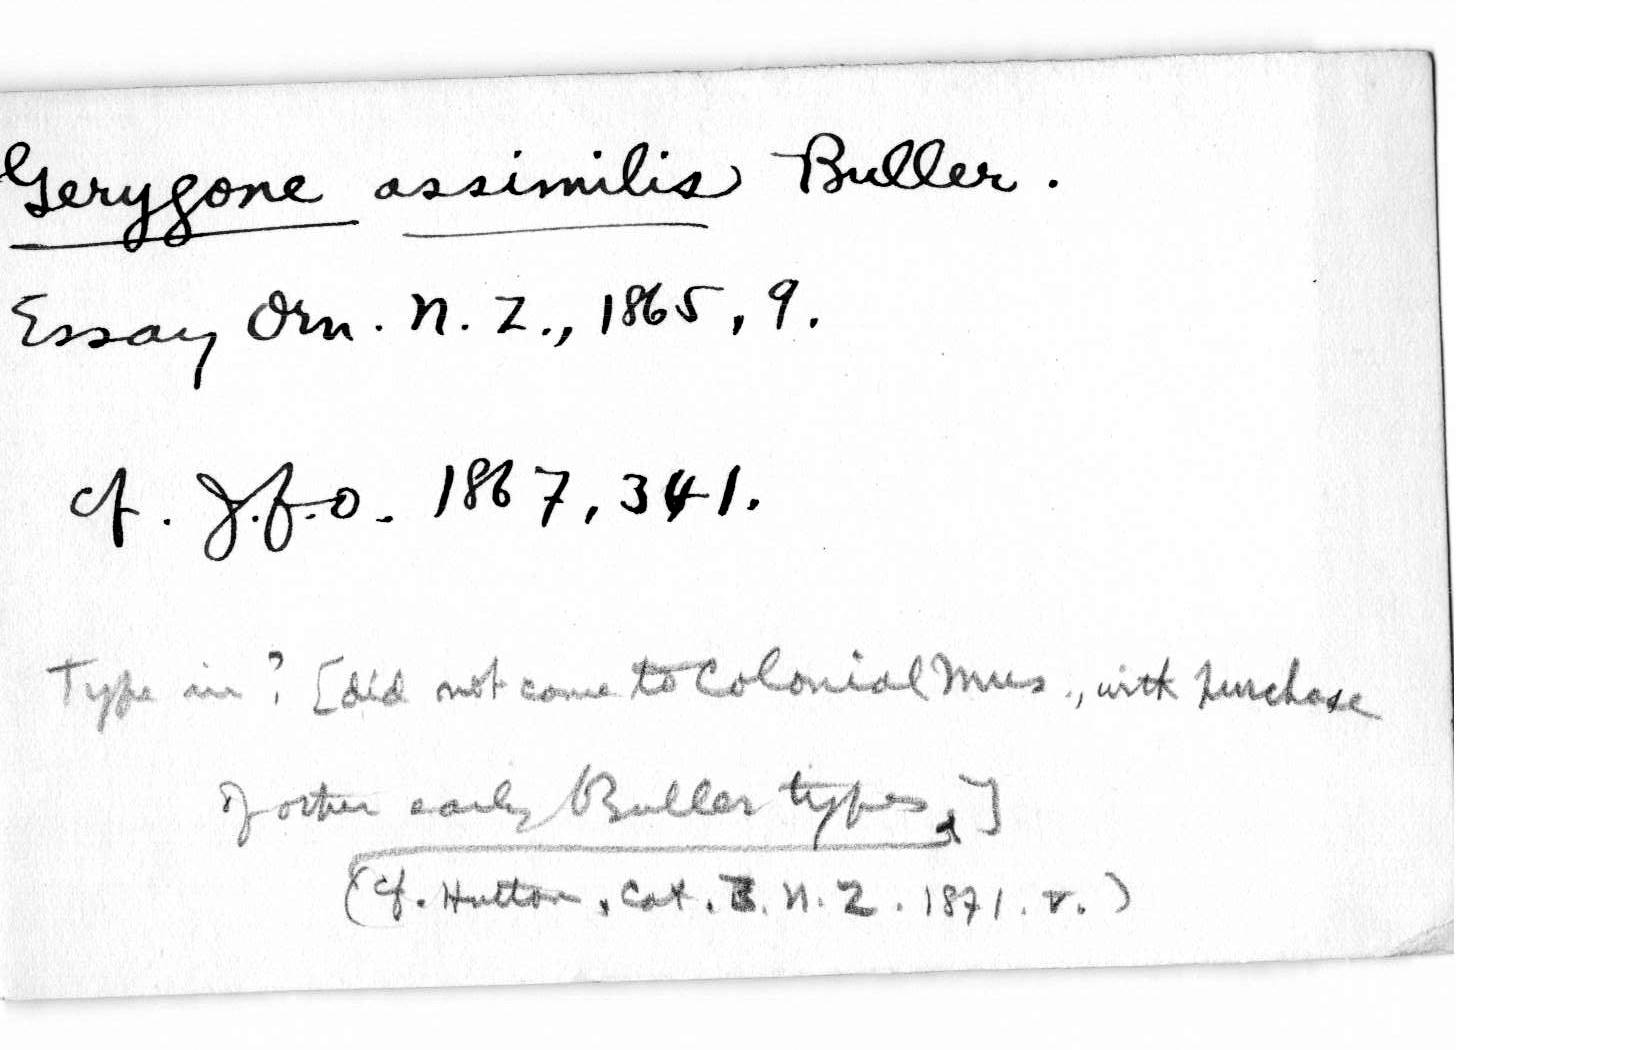 Gerygone assimilis Buller.
Essay Orn. N. Z., 1865, 9.
cf. J.f.O. 1867, 341.
Type in? [did not come to Colonial Mus., with purchase
of other early Buller types,]
(cf. Hutton, Cat. B. N. Z. 1871. v.)